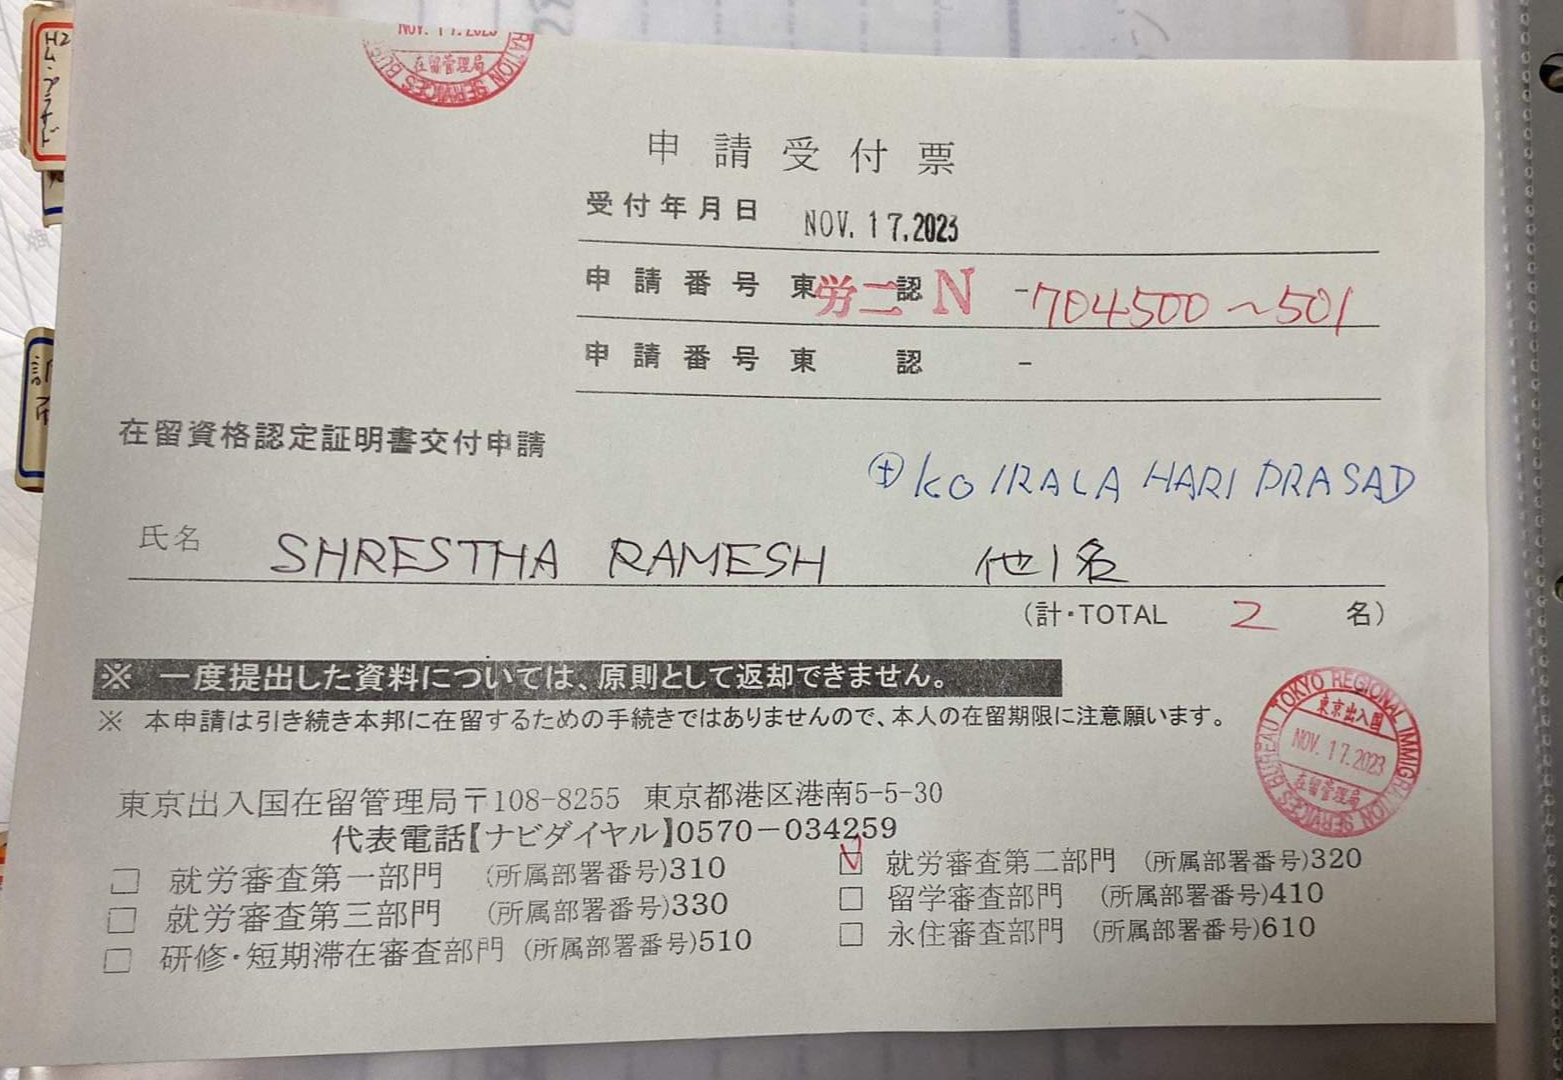 NOV. 17.2023
在留管理局
RATION SERVICES BU
申請受付票
受付年月日 NOV. 17.2023
申請番号 東労二認N -704500～501
申請番号 東 認 -
在留資格認定証明書交付申請
⊕ KOIRALA HARI PRASAD
氏名 SHRESTHA RAMESH 他1名
(計・TOTAL 2 名)
※ 一度提出した資料については、原則として返却できません。
※ 本申請は引き続き本邦に在留するための手続きではありませんので、本人の在留期限に注意願います。
TOKYO REGIONAL IMMIGRATION SERVICES BUREAU
東京出入国
NOV. 17.2023
在留管理局
東京出入国在留管理局〒108-8255 東京都港区港南5-5-30
代表電話【ナビダイヤル】0570－034259
□ 就労審査第一部門 (所属部署番号)310
☑ 就労審査第二部門 (所属部署番号)320
□ 就労審査第三部門 (所属部署番号)330
□ 留学審査部門 (所属部署番号)410
□ 研修・短期滞在審査部門 (所属部署番号)510
□ 永住審査部門 (所属部署番号)610